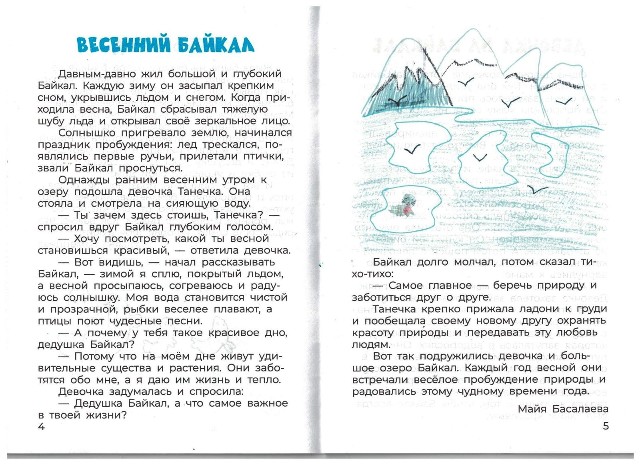 ВЕСЕННИЙ БАЙКАЛ
Давным-давно жил большой и глубокий
Байкал. Каждую зиму он засыпал крепким
сном, укрывшись льдом и снегом. Когда при-
ходила весна, Байкал сбрасывал тяжелую
шубу льда и открывал своё зеркальное лицо.
Солнышко пригревало землю, начинался
праздник пробуждения: лед трескался, по-
являлись первые ручьи, прилетали птички,
звали Байкал проснуться.
Однажды ранним весенним утром к
озеру подошла девочка Танечка. Она
стояла и смотрела на сияющую воду.
— Ты зачем здесь стоишь, Танечка? —
спросил вдруг Байкал глубоким голосом.
— Хочу посмотреть, какой ты весной
становишься красивый, — ответила девочка.
— Вот видишь, — начал рассказывать
Байкал, — зимой я сплю, покрытый льдом,
а весной просыпаюсь, согреваюсь и раду-
юсь солнышку. Моя вода становится чистой
и прозрачной, рыбки веселее плавают, а
птицы поют чудесные песни.
— А почему у тебя такое красивое дно,
дедушка Байкал?
— Потому что на моём дне живут уди-
вительные существа и растения. Они забо-
тятся обо мне, а я даю им жизнь и тепло.
Девочка задумалась и спросила:
— Дедушка Байкал, а что самое важное
в твоей жизни?
4
Байкал долго молчал, потом сказал ти-
хо-тихо:
— Самое главное — беречь природу и
заботиться друг о друге.
Танечка крепко прижала ладони к груди
и пообещала своему новому другу охранять
красоту природы и передавать эту любовь
людям.
Вот так подружились девочка и боль-
шое озеро Байкал. Каждый год весной они
встречали весёлое пробуждение природы и
радовались этому чудному времени года.
Майя Басалаева
5